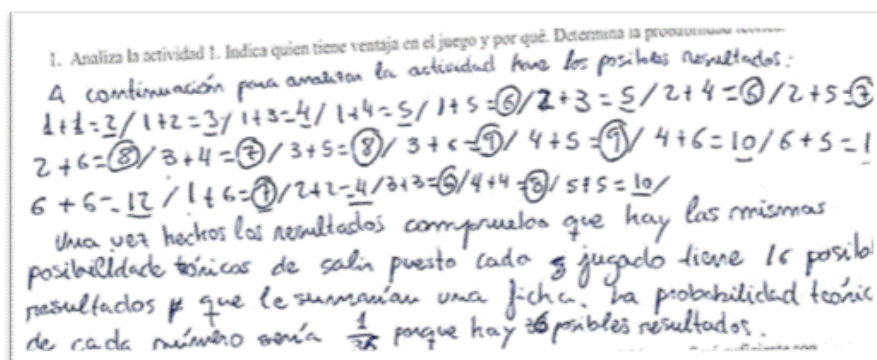 1. Analiza la actividad 1. Indica quien tiene ventaja en el juego y por qué. Determina la
A continuación para analizar la actividad hare los posibles resultados:
1+1=2/ 1+2=3/ 1+3=4/ 1+4=5/ 1+5=6/ 2+3=5/ 2+4=6/ 2+5=7
2+6=8/ 3+4=7/ 3+5=8/ 3+6=9/ 4+5=9/ 4+6=10/ 6+5=1
6+6=12/ 1+6=7/ 2+2=4/ 3+3=6/ 4+4=8/ 5+5=10/
Una vez hechos los resultados compruebo que hay las mismas
de salir puesto cada jugado tiene posib
resultados que le sumarían una ficha. La probabilidad teóric
de cada número sería porque hay posibles resultados.